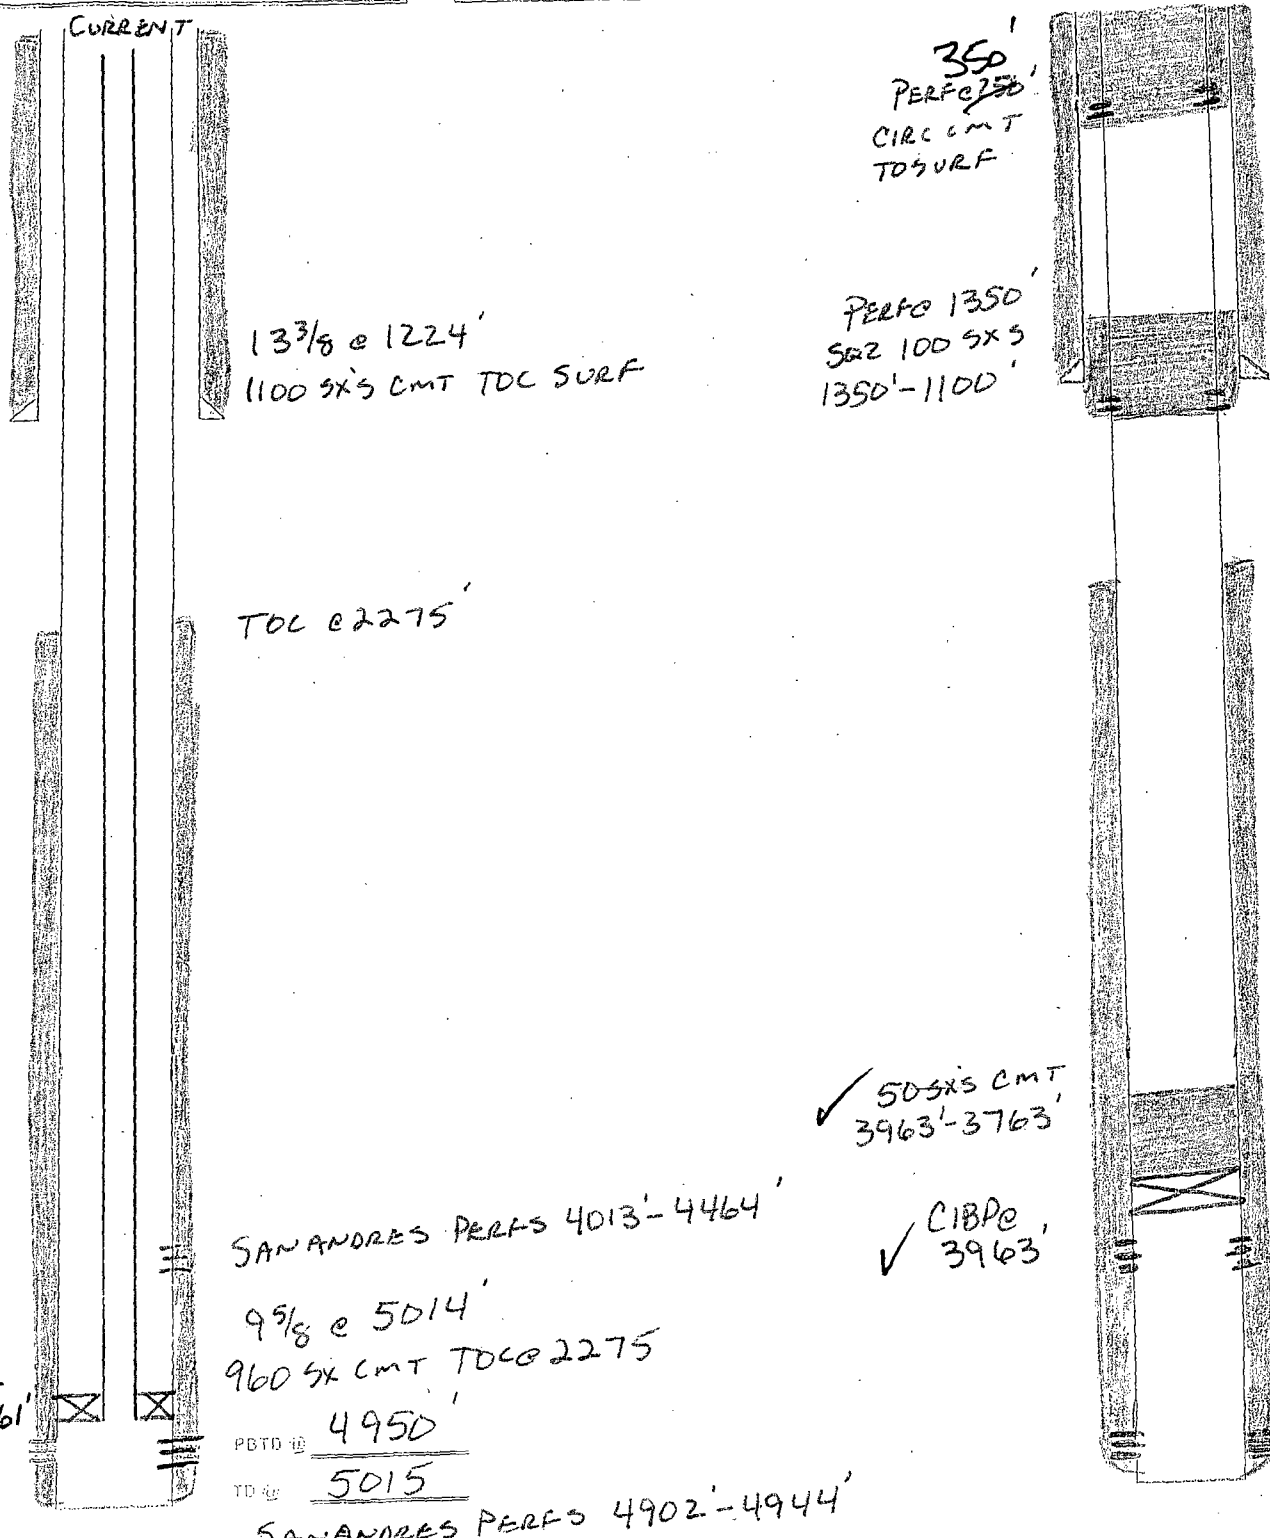 CURRENT
13 3/8 @ 1224'
1100 SX'S CMT TOC SURF
TOC @ 2275'
SAN ANDRES PERFS 4013'-4464'
9 5/8 @ 5014'
960 SX CMT TOC @ 2275
61'
PBTD @ 4950'
TD @ 5015
SAN ANDRES PERFS 4902'-4944'
350'
PERF @ 250'
CIRC CMT
TO SURF
PERF @ 1350'
SQZ 100 SXS
1350'-1100'
✓ 50 SX'S CMT
3963'-3763'
✓ CIBP @
3963'